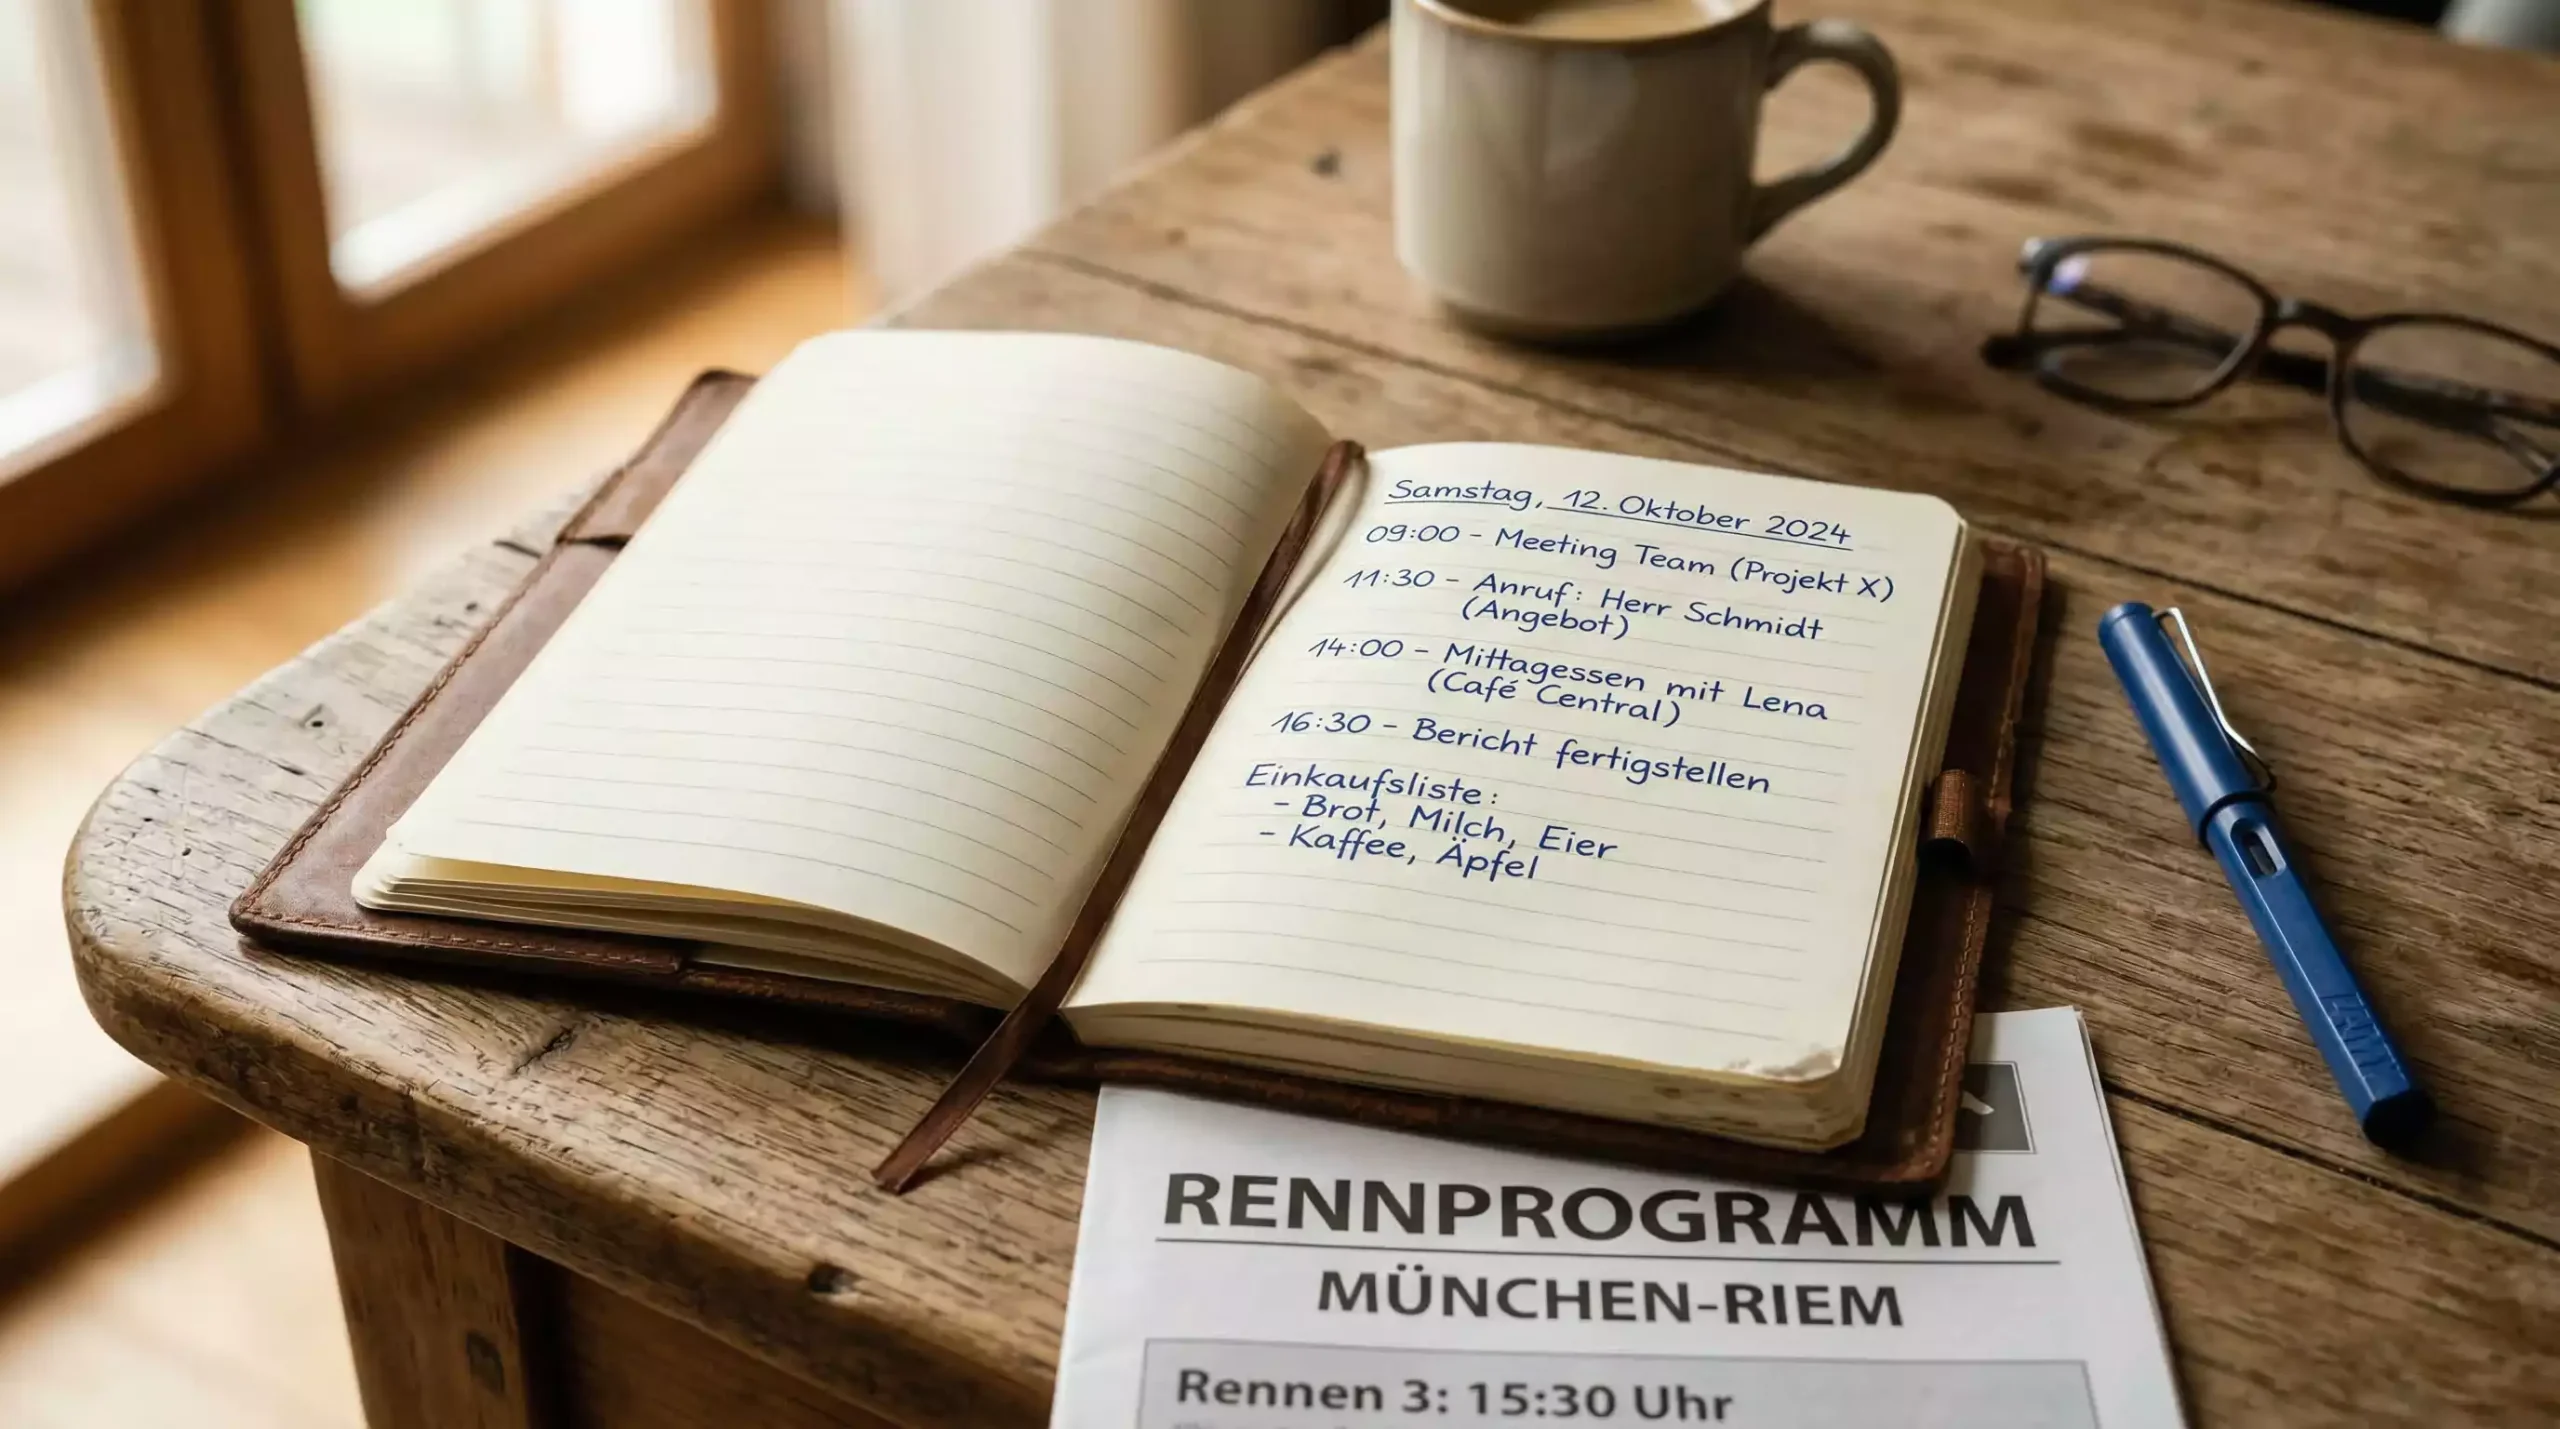 Samstag, 12. Oktober 2024
09:00 - Meeting Team (Projekt X)
11:30 - Anruf: Herr Schmidt
(Angebot)
14:00 - Mittagessen mit Lena
(Café Central)
16:30 - Bericht fertigstellen
Einkaufsliste:
- Brot, Milch, Eier
- Kaffee, Äpfel
LAMY
RENNPROGRAMM
MÜNCHEN-RIEM
Rennen 3: 15:30 Uhr